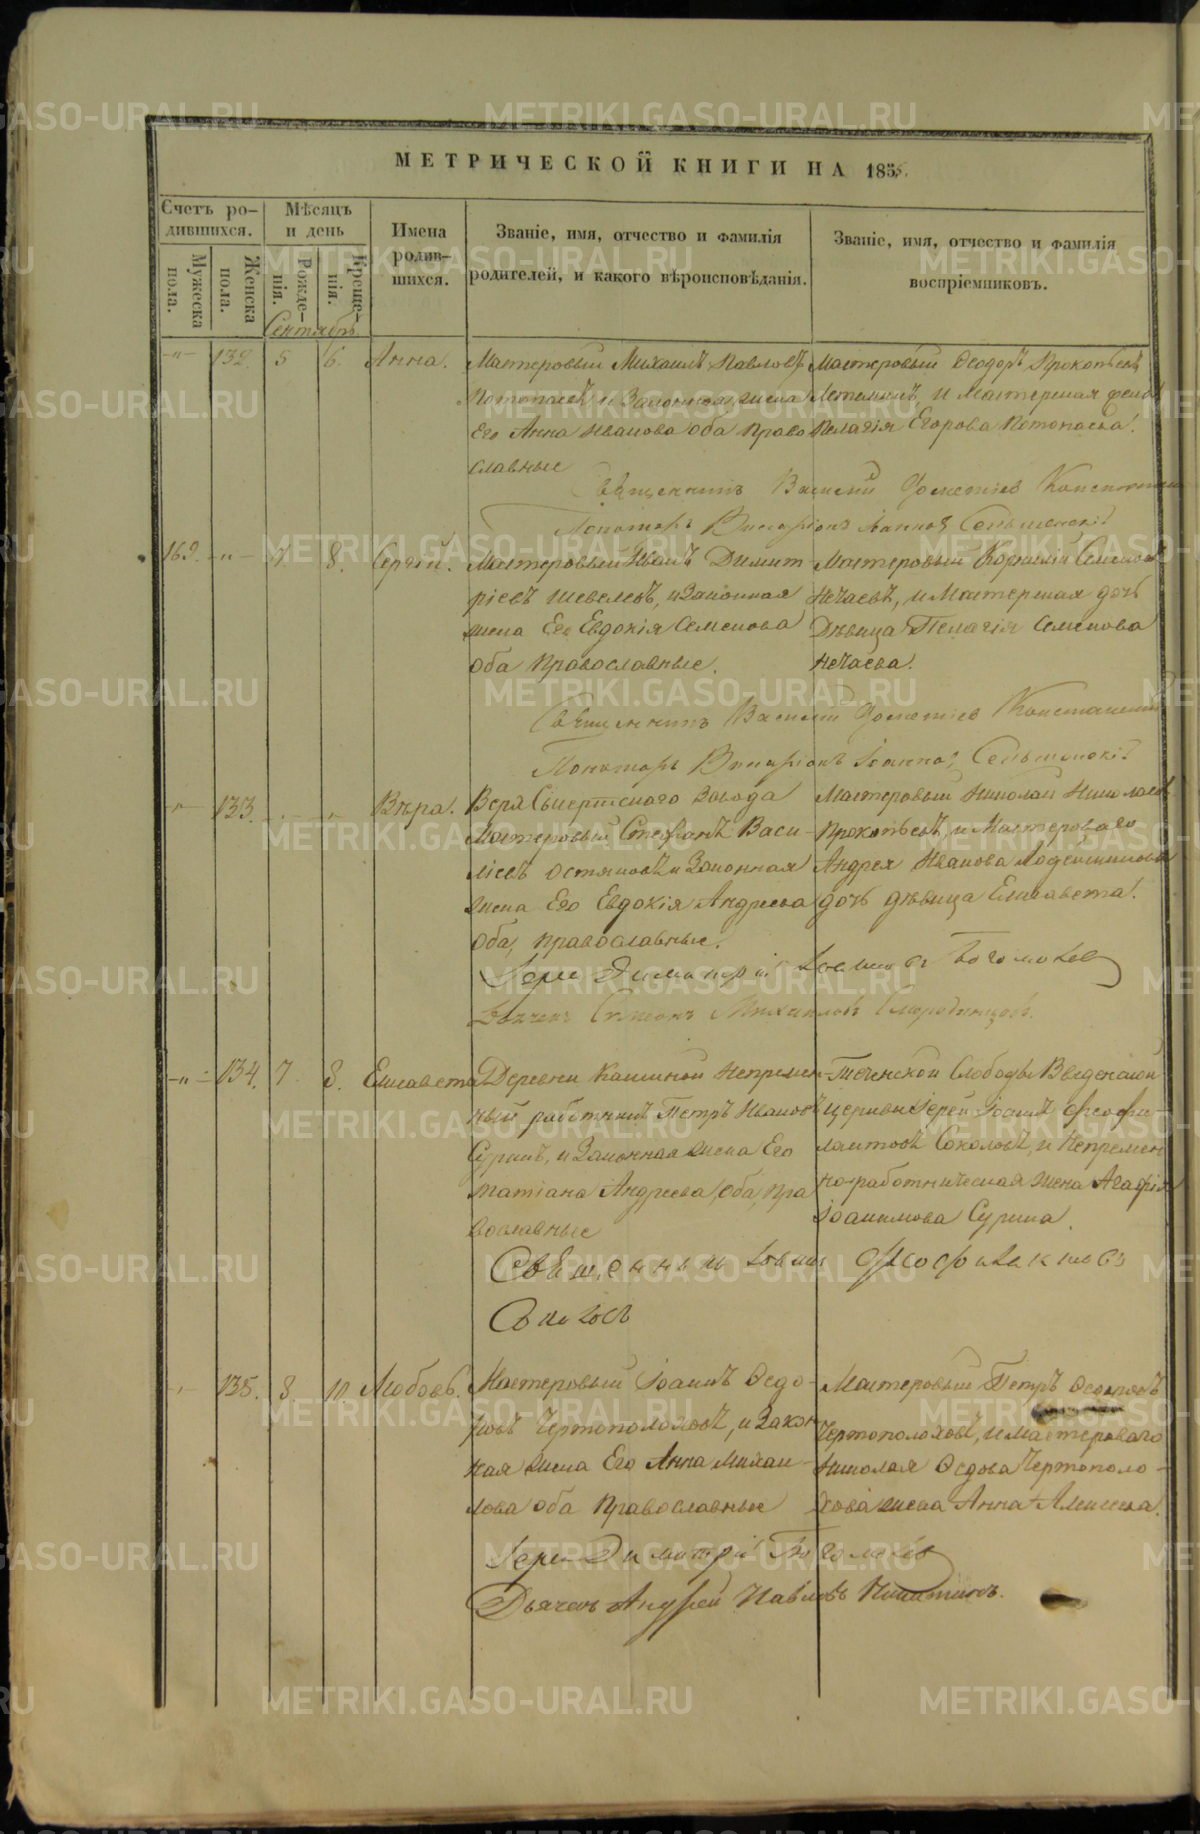 МЕТРИЧЕСКОЙ КНИГИ НА 1855.
Счетъ ро-
дившихся.
Мѣсяцъ
и день
Имена
родив-
шихся.
Званіе, имя, отчество и фамилія
родителей, и какого вѣроисповѣданія.
Званіе, имя, отчество и фамилія
воспріемниковъ.
Мужеска
пола.
Женска
пола.
Рожде-
нія.
Креще-
нія.
Сентябрь
-"- 132. 5 6. Анна.
Мастеровый Михаилъ Павловъ
Потопаевъ и Законная жена
Его Анна Иванова оба Право
славные
Мастеровый Ѳеодоръ Прокопьевъ
и Мастерская
Пелагія Егорова Потопаева.
Священникъ Василій
Пономарь Іоанновъ
162. -"- 7 8. Сергій.
Мастеровый Иванъ Димит
ріевъ Шевелевъ, и Законная
жена Его Евдокія Семенова
оба Православные.
Мастеровый Корнилій Семеновъ
Нечаевъ, и Мастерская дочь
Дѣвица Пелагія Семенова
Нечаева.
Священникъ Василій
Пономарь
-"- 133. - " Вѣра.
Верх Сысертскаго Завода
Мастеровый Стефанъ Васи-
ліевъ и Законная
жена Его Евдокія Андреева
Оба, православные.
Мастеровый Николай Николаевъ
Прокопьевъ, и Мастероваго
Андрея Иванова
дочь дѣвица Елисавета.
Іерей Димитрій Богомоловъ
Дьячекъ Симеонъ Михайловъ Смородинцовъ.
-"- 134. 7 8. Елисавета
Деревни Кашиной Непремен-
ный работникъ Петръ Ивановъ
Суринъ, и Законная жена Его
Татіана Андреева, оба, пра
вославные
Теченской Слободы Введенской
церкви Іерей Іоаннъ Ѳеофи-
лактовъ Соколовъ, и Непремен
но-работническая жена Агафія
Іоакимова Сурина.
Священникъ Іоаннъ Ѳеофилактовъ
Соколовъ
-"- 135. 8. 10. Любовь.
Мастеровый Іоаннъ Ѳедо-
ровъ Чертополоховъ, и Закон
ная жена Его Анна Михаи-
лова оба Православные
Мастеровый Петръ
Чертополоховъ, и мастероваго
Николая Ѳедова Чертополо-
хова жена Анна Алексеева.
Іерей Димитрій Богомоловъ
Дьячекъ Андрей Павловъ Никитинъ.